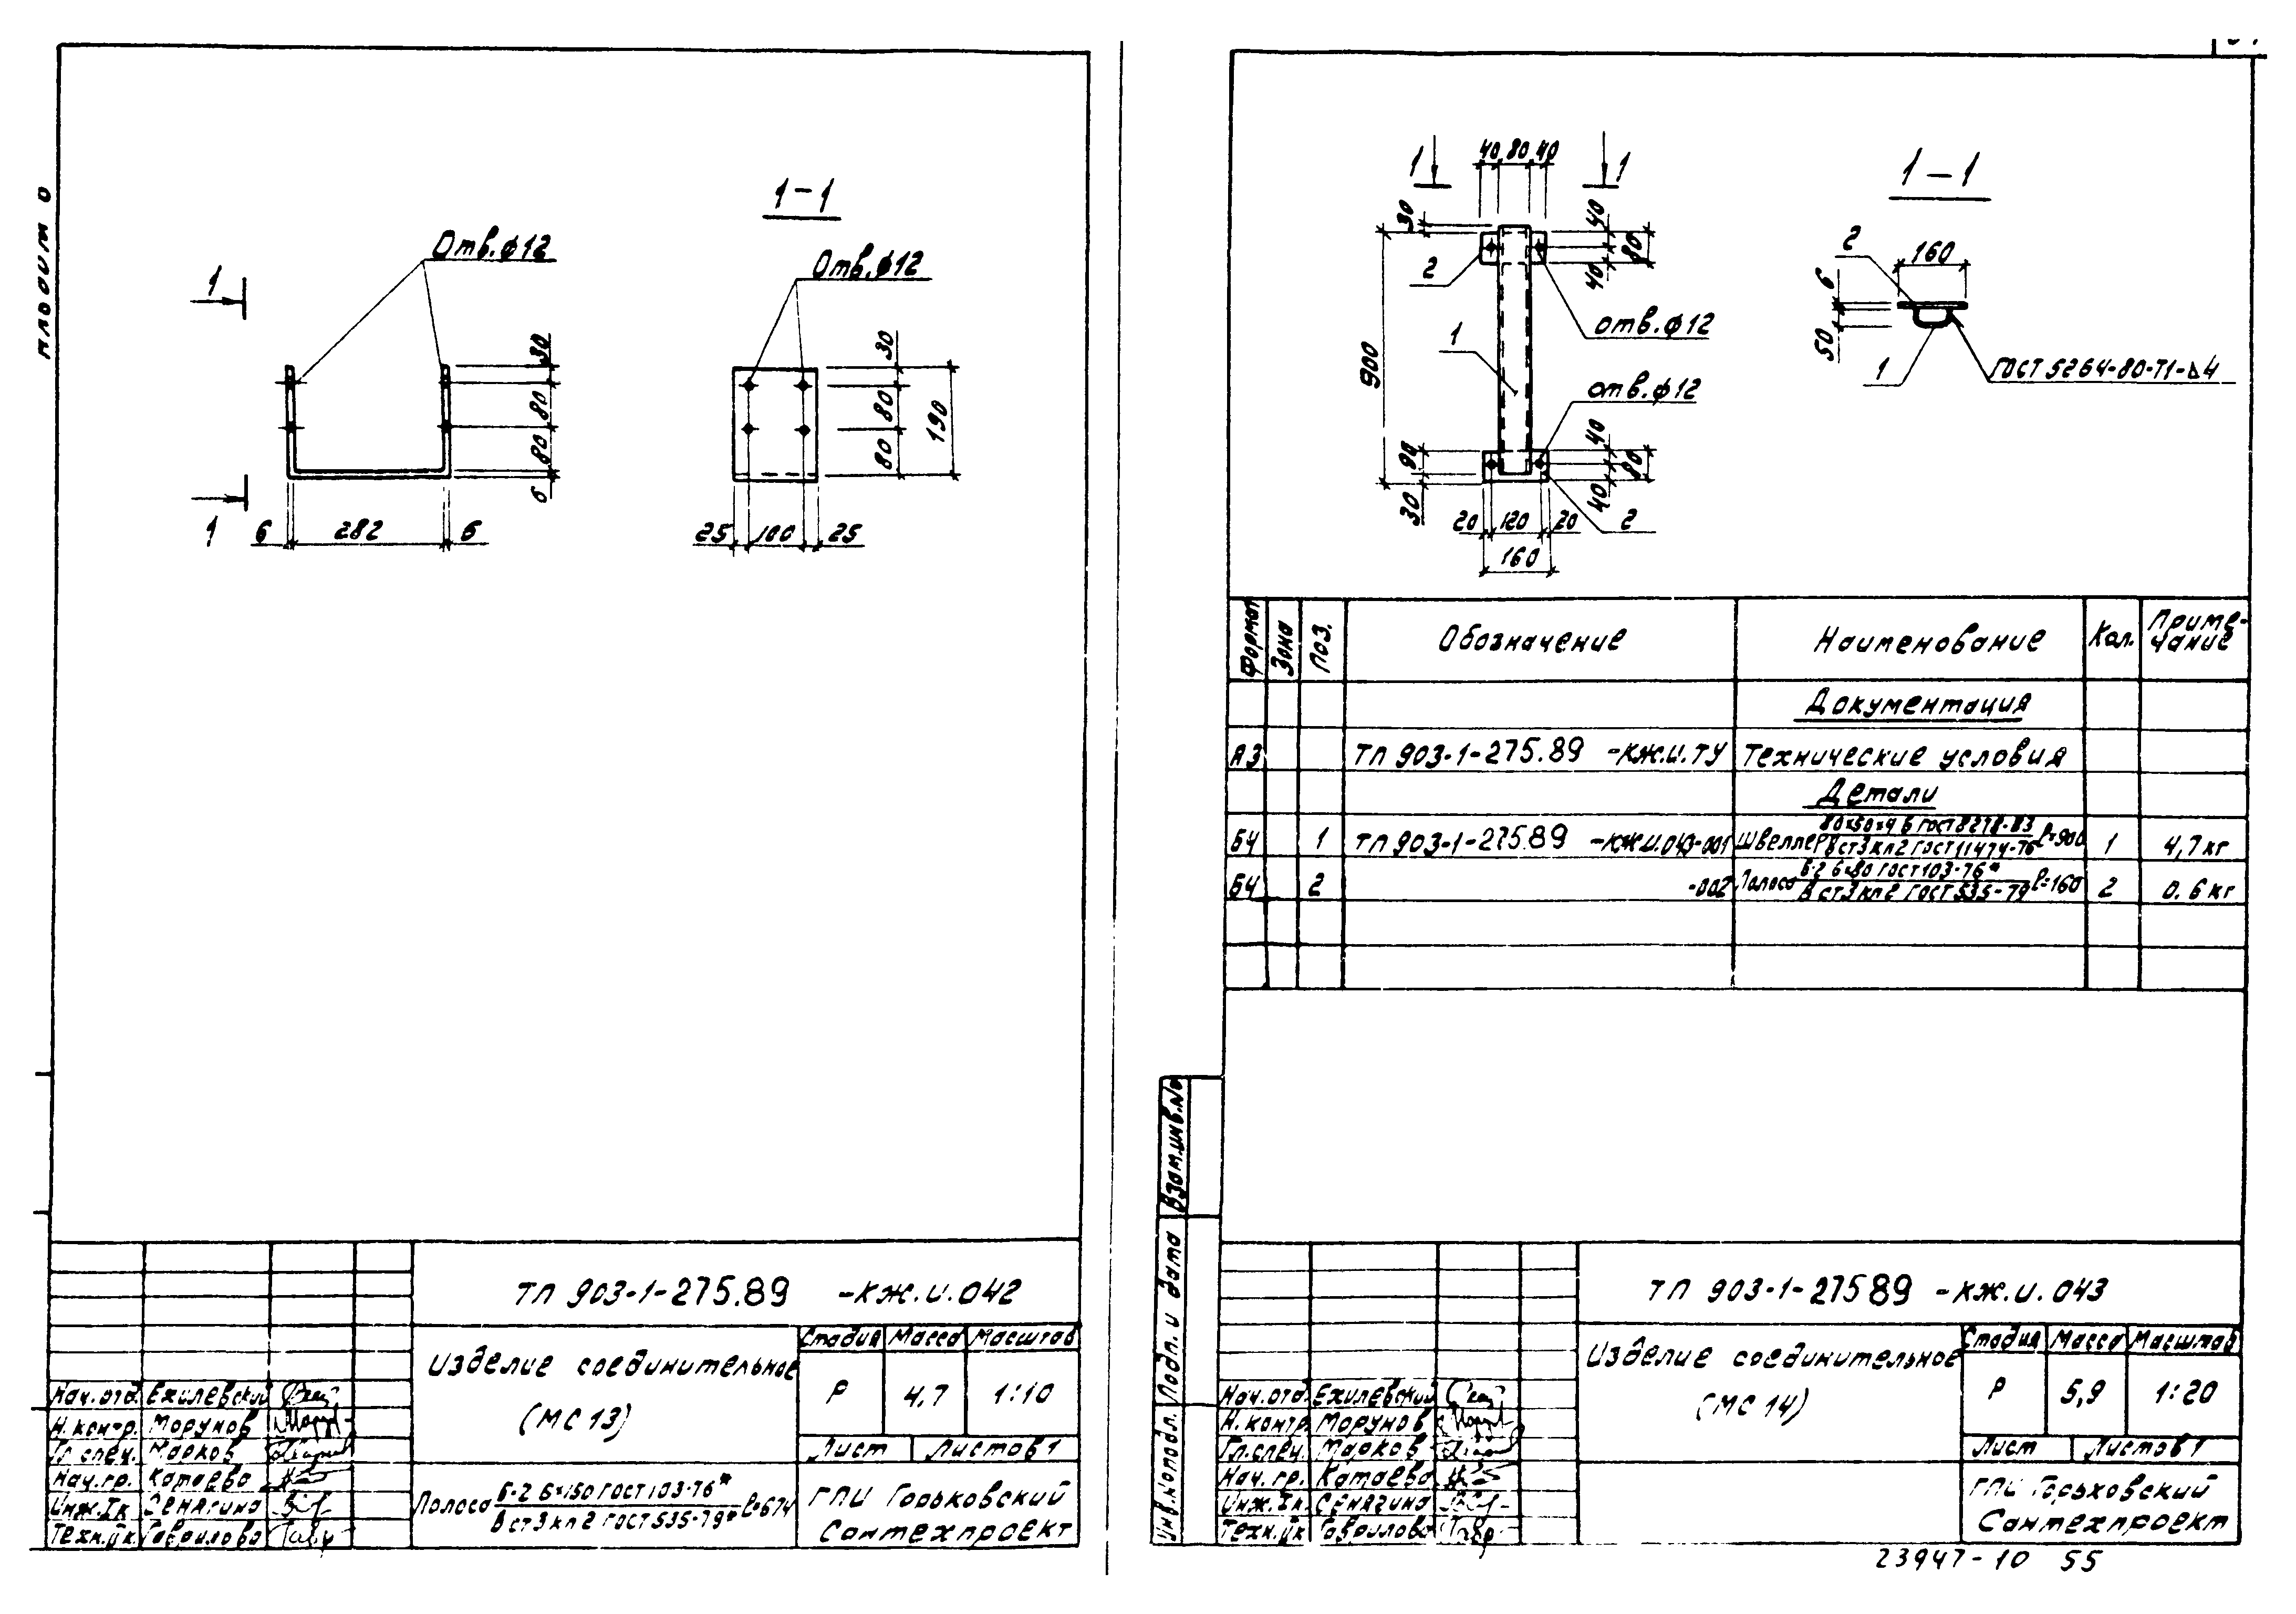 1-1
Отв.ф12
Отв.ф12
1
1
30
80
80
6
6
282
6
30
80
80
190
25
100
25
ТП 903-1-275.89 -КЖ.И.042
Изделие соединительное
(МС 13)
Стадия Масса Масштаб
Р 4,7 1:10
Лист Листов 1
Нач.отд. Ехилевский
Н.контр. Морунов
Гл.спец. Марков
Нач.гр. Катаева
Инж.Iк. Сенягина
Техн.IIк. Гаврилова
Полоса Б-2 6×150 ГОСТ 103-76* l=674
В ст3 кп2 ГОСТ 535-79*
ГПИ Горьковский
Сантехпроект
1 1
40 80 40
1-1
30
40
80
40
2
900
отв.ф12
1
отв.ф12
90
30
40
80
40
20 120 20
2
160
2
160
6
50
1
ГОСТ 5264-80-Т1-⊿4
Формат Зона Поз. Обозначение Наименование Кол. Приме-
чание
Документация
А3 ТП 903-1-275.89 -КЖ.И.ТУ Технические условия
Детали
БЧ 1 ТП 903-1-275.89 -КЖ.И.043-001 Швеллер 80×50×4 Б ГОСТ 8278-83 l=900 1 4,7 кг
В ст3 кп2 ГОСТ 11474-76
БЧ 2 -002 Полоса Б-2 6×80 ГОСТ 103-76* l=160 2 0.6 кг
В ст3 кп2 ГОСТ 535-79
Взам.инв.№
Подп. и дата
Инв.№подл.
ТП 903-1-275.89 -КЖ.И.043
Изделие соединительное
(МС 14)
Стадия Масса Масштаб
Р 5,9 1:20
Лист Листов 1
Нач.отд. Ехилевский
Н.контр. Морунов
Гл.спец. Марков
Нач.гр. Катаева
Инж.Iк. Сенягина
Техн.IIк Гаврилова
ГПИ Горьковский
Сантехпроект
23947-10 55